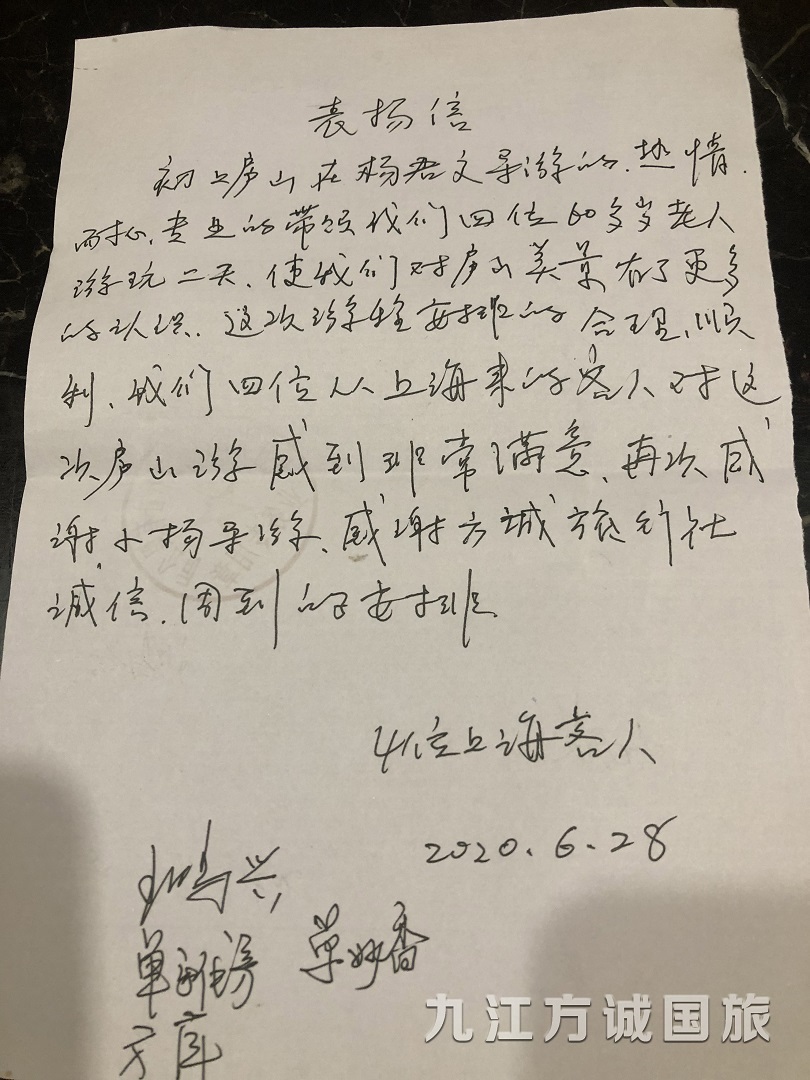 表扬信
初上庐山在杨君文导游的、热情、
耐心、专业的带领我们四位60多岁老人
游玩二天、使我们对庐山美景有了更多
的认识、这次游程安排的合理、顺
利、我们四位从上海来的客人对这
次庐山游感到非常满意、再次感
谢小杨导游、感谢方诚旅行社
诚信、周到的安排
4位上海客人
2020.6.28
鸣兴
单 单妙香
方
九江方诚国旅